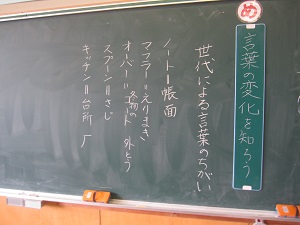 め
言葉の変化を知ろう
世代による言葉のちがい
ノート＝帳面
マフラー＝えりまき
オーバー＝冬物のコート 外とう
スプーン＝さじ
キッチン＝台所